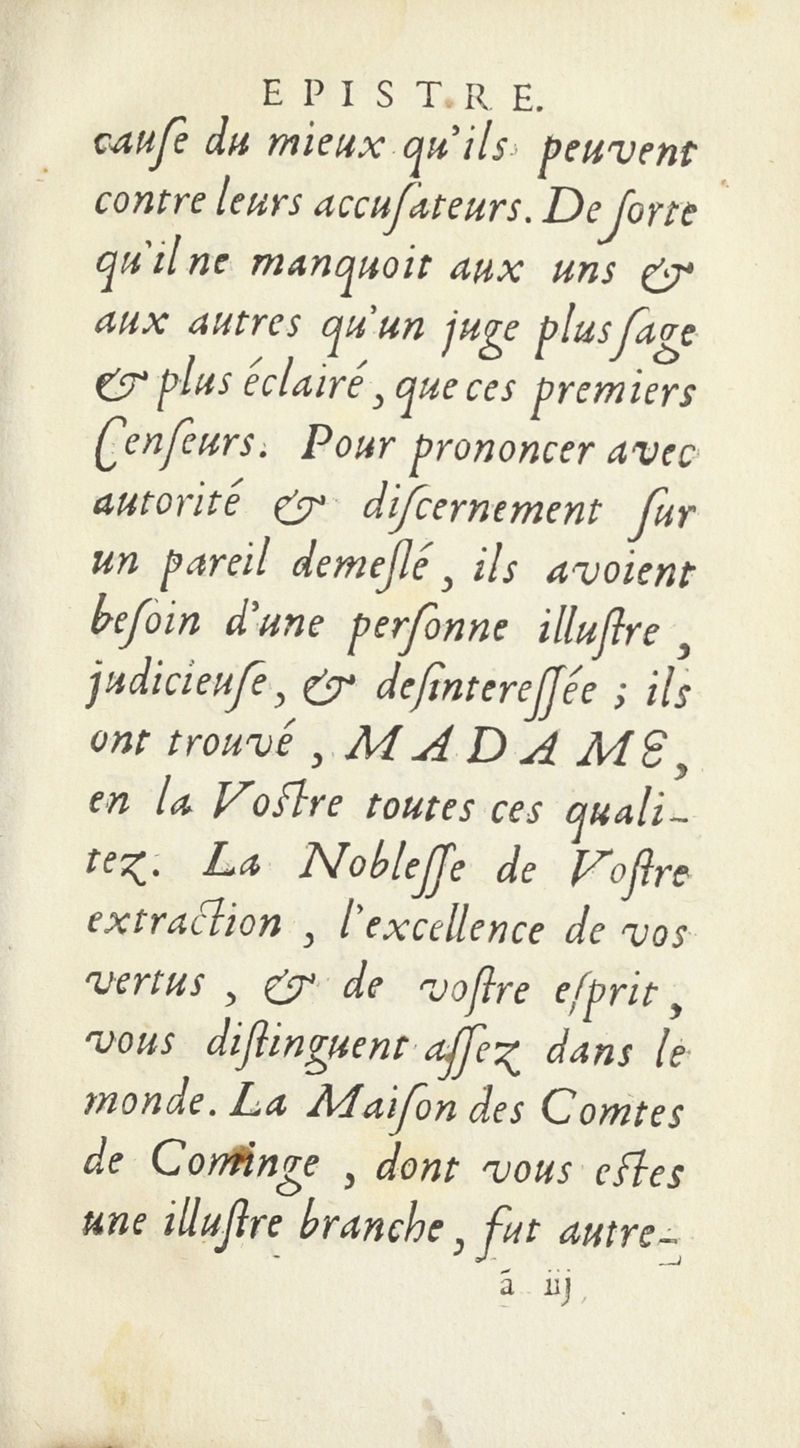 EPISTRE.
cauſe du mieux qu'ils peuvent
contre leurs accuſateurs. De ſorte
qu'il ne manquoit aux uns &
aux autres qu'un juge plus ſage
& plus éclairé, que ces premiers
Cenſeurs. Pour prononcer avec
autorité & diſcernement ſur
un pareil demeſlé, ils avoient
beſoin d'une perſonne illuſtre,
judicieuſe, & deſintereſſée ; ils
ont trouvé, MADAME,
en la Voſtre toutes ces quali-
tez. La Nobleſſe de Voſtre
extraction, l'excellence de vos
vertus, & de voſtre eſprit,
vous diſtinguent aſſez dans le
monde. La Maiſon des Comtes
de Cominge, dont vous eſtes
une illuſtre branche, fut autre-
ã iij